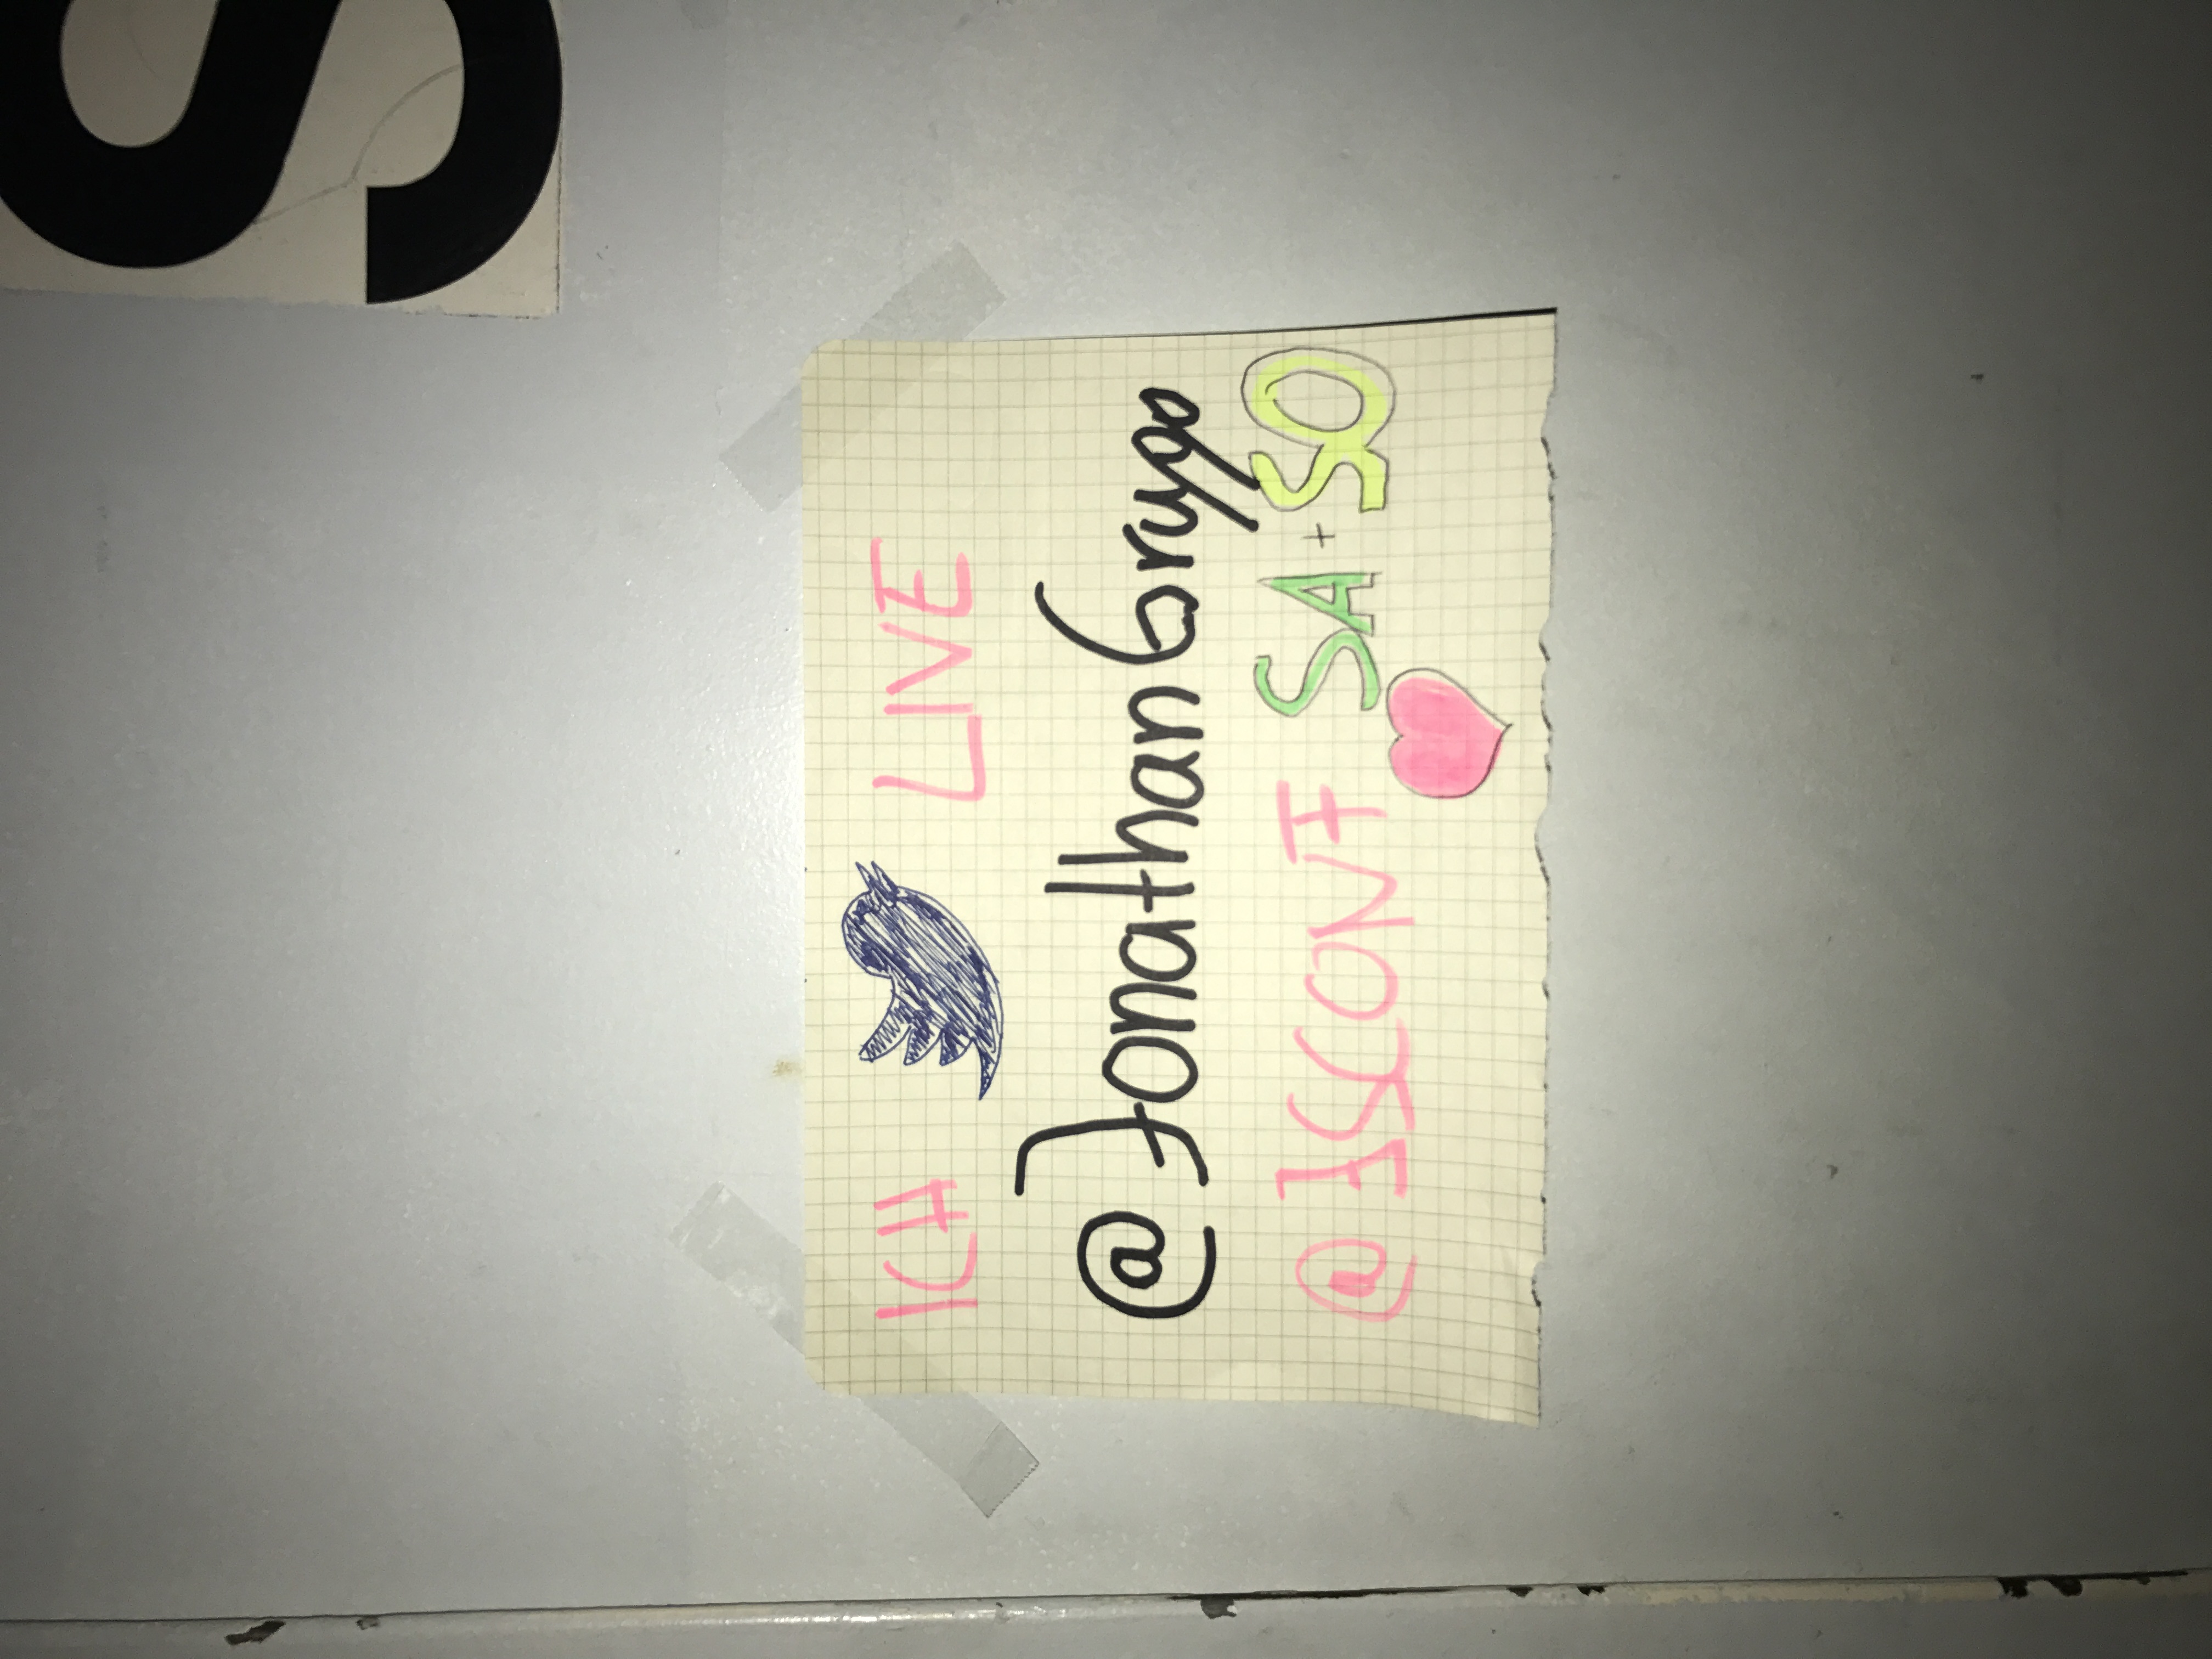 S
ICH LIVE
@JonathanGrupp
@JSCONF SA + SO